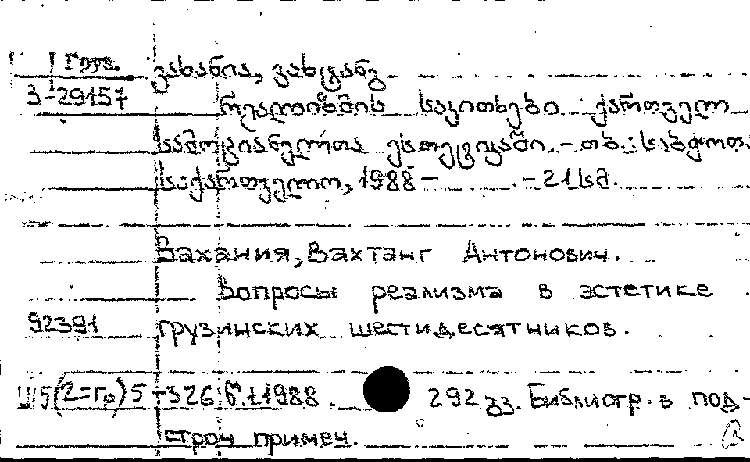 Груз. ვახანია, ვახტანგ.
3-29157 რეალიზმის საკითხები ქართველ
სამოციანელთა ესთეტიკაში. - თბ.: საბჭოთა
საქართველო, 1988 - . - 21 სმ.
Вахания, Вахтанг Антонович.
Вопросы реализма в эстетике
92391 грузинских шестидесятников.
Ш5(2=Гр)5-326 წ.1.1988. 292 გვ. Библиогр. в под-
строч примеч.